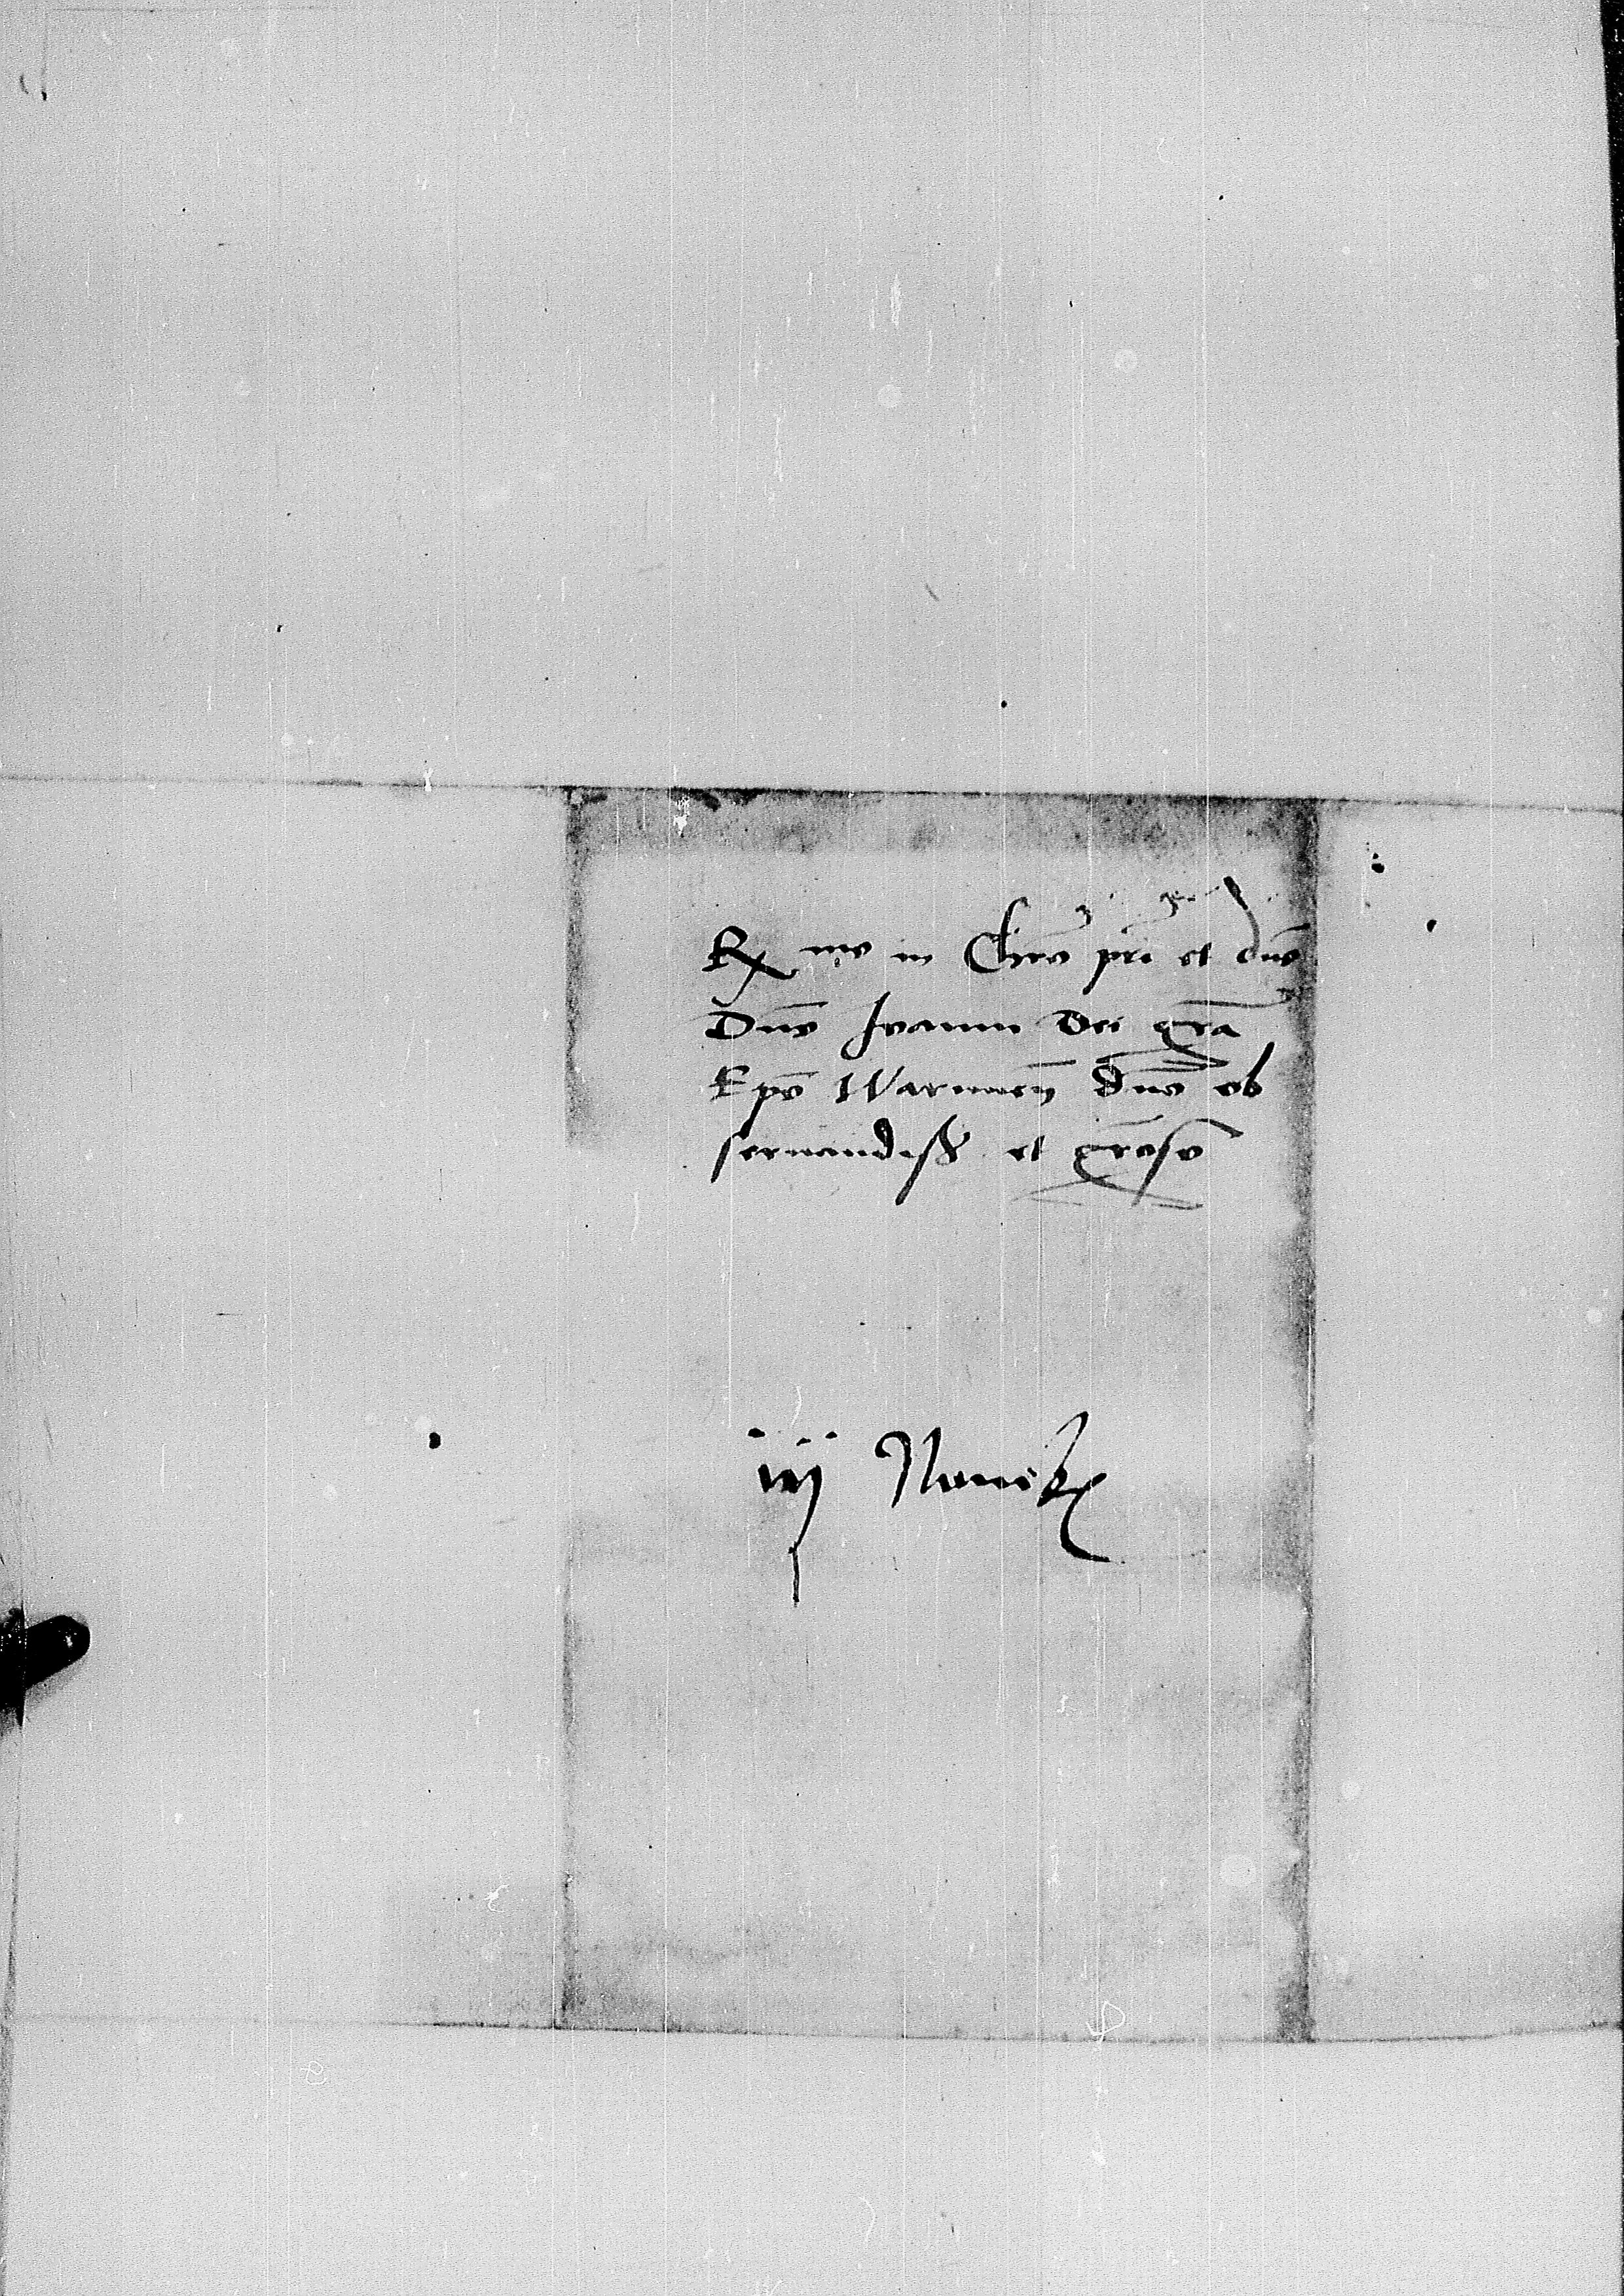 Rx mo in Chro pri et dno
Dno Joanni Dei gra
Epo Warmien Dno ob
seruandiss et groso
iij Nouebr